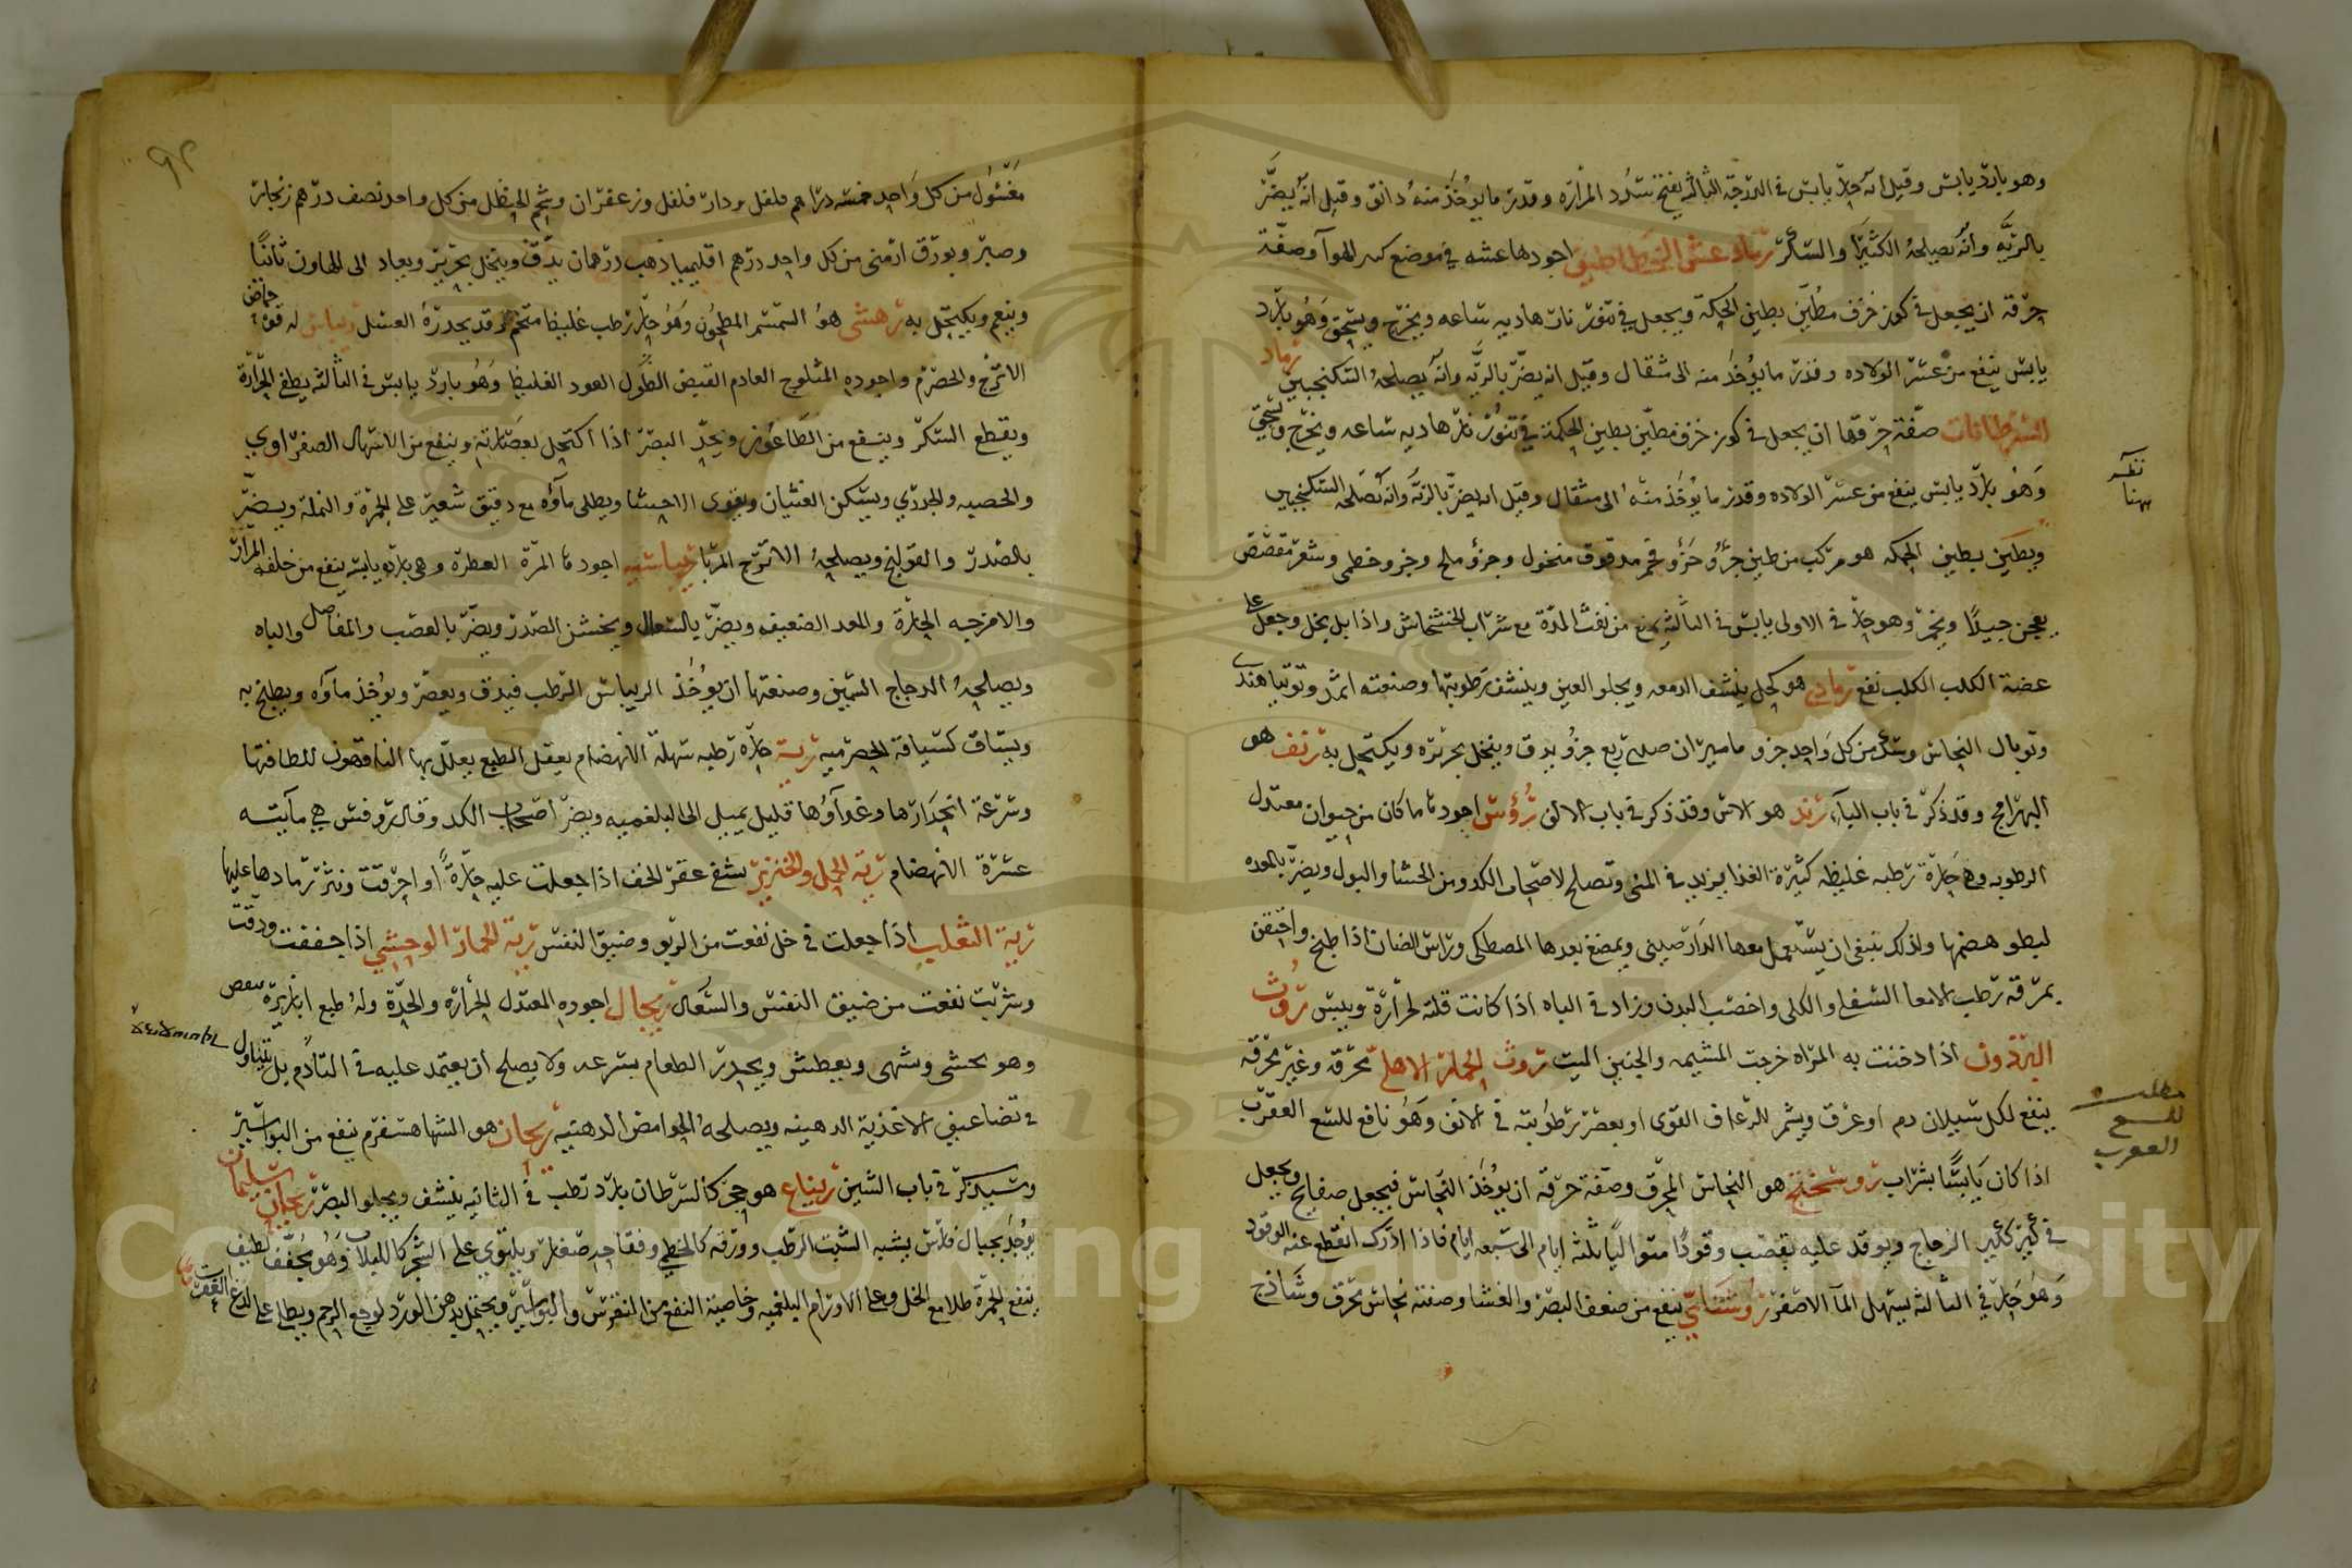 وهو بارد يابس وقيل انه حار يابس في الدرجة الثالثة يفتح سدد المرارة وقدر ما يوخذ منه دانق وقيل انه يضر
بالرية وانه يصلحه الكثيرا والسكر رماد عش الخطاطيف اجودها عشه في موضع كثير الهوآ وصفة
حرقه ان يجعل في كوز خزف مطين بطين الحكمة ويجعل في تنور نار هاديه ساعه ويخرج ويسحق وهو بارد
يابس ينفع من عسر الولاده وقدر ما يوخذ منه الى مثقال وقيل انه يضر بالريه وانه يصلحه السكنجبين رماد
السرطانات صفة حرقها ان يجعل في كوز خزف مطين بطين الحكمة في تنور نار هاديه ساعه ويخرج ويسحق
وهو بارد يابس ينفع من عسر الولاده وقدر ما يوخذ منه الى مثقال وقيل انه يضر بالرية وانه يصلحه السكنجبين
ويطين بطين الحكمه هو مركب من طين جزؤ جزؤ فحم مدقوق منخول وجزؤ ملح وجزو خطمى وشعر مقصص
يعجن جيدًا ويخمر وهو حار في الاولى يابس في الثالثه يمنع من نفث المدة مع شراب الخشخاش واذا بل بخل وجعل على
عضة الكلب الكلب نفع رمادي هو كحل ينشف الدمعه ويجلو العين وينشف رطوبتها وصنعته اثمد وتوتيا هندي
وتوبال النحاس وسك من كل واحد جزو ماميران صينى ربع جزؤ يدق وينخل بحريره ويكتحل به رنف هو
البهرامج وقد ذكر في باب البآء رند هو الاس وقد ذكر في باب الالف رؤس اجودها ما كان من حيوان معتدل
الرطوبه وهي حارة رطبه غليظه كثيرة الغذا يزيد في المنى وتصلح لاصحاب الكد ومن الحشا والبول ويضر بالمعده
لبطو هضمها ولذلك ينبغى ان يستعمل معها الدارصينى ويمضغ بعدها المصطكى ورأس الضان اذا طبخ واحتقن
بمرقه رطب الامعا السفلى والكلى واخصب البدن وزاد في الباه اذا كانت قلته لحرارة ويبس روث
البرذون اذا دخنت به المرأه خرجت المشيمه والجنين الميت روث الحمار الاهلي محرقه وغير محرقه
ينفع لكل سيلان دم او عرق ويشم للرعاف القوى او يعصر رطوبته في الانف وهو نافع للسع العقرب
اذا كان يابسًا بشراب روسختج هو النحاس المحرق وصفة حرقه ان يوخذ النحاس فيجعل صفايح ويجعل
في كير ككير الزجاج ويوقد عليه بقصب وقودًا متواليًا ثلثة ايام الى سبعه ايام فاذا ادرك انقطع عنه الوقود
وهو حار في الثالثه يسهل المآ الاصفر روشنايي ينفع من ضعف البصر والغشا وصفته نحاس محرق وشاذج
نظر
هنا
مطلب
للسع
العقرب
٩٢
مغسول من كل واحد خمسه دراهم فلفل ودار فلفل وزعفران وشحم الحنظل من كل واحد نصف درهم زنجار
وصبر وبورق ارمنى من كل واحد درهم اقليميا ذهب درهمان يدق وينخل بحرير ويعاد الى الهاون ثانيًا
وينعم ويكتحل به رهشى هو السمسم المطحون وهو حار رطب غليظ متخم وقد يحدره العسل ريباس له قوة حماض
الاترج والحصرم واجوده المثلوج العادم القبض الطول العود الغليظ وهو بارد يابس في الثالثه يطفى الحرارة
ويقطع السكر وينفع من الطاعون ويحد البصر اذا اكتحل بعصارته وينفع من الاسهال الصفراوي
والحصبه والجدري ويسكن الغثيان ويقوى الاحشا ويطلى مآؤه مع دقيق شعير على الحمرة والنملة ويضر
بالصدر والقولنج ويصلحه الاترج المربا ريباسيه اجودها المرة العطرة وهي بارده يابسه ينفع من خلفه المرار
والامزجه الحارة والمعد الضعيفه ويضر بالسعال ويخشن الصدر ويضر بالعصب والمفاصل والباه
ويصلحه الدجاج السمين وصنعتها ان يوخذ الريباس الرطب فيدق ويعصر ويوخذ مآؤه ويطبخ به
ويساق كسياقة الحصرميه رية حاره رطبه سهلة الانهضام يعقل الطبع يعلل بها الناقهون للطافتها
وسرعة انحدارها وغذآؤها قليل يميل الى البلغميه ويضر اصحاب الكد وقال روفس هي مآيئه
عسرة الانهضام رية الحمل والخنزير يشفى عقر الخف اذا جعلت عليه حارةً او احرقت ونثر رمادها عليها
رية الثعلب اذا جعلت في خل نفعت من الربو وضيق النفس رية الحمار الوحشي اذا جففت ودقت
وشربت نفعت من ضيق النفس والسعال ريجال اجوده المعتدل الحرارة والحدة وله طبع ابازيره
وهو يحشى ويشهى ويعطش ويحدر الطعام بسرعه ولا يصلح ان يعتمد عليه في التادم بل يتناول
في تضاعيف الاغذية الدهينه ويصلحه الحوامض الدهنيه ريحان هو الشاهسفرم ينفع من البواسير
وسيذكر في باب الشين ريباع هو حجر كالسرطان بارد رطب في الثانيه ينشف ويجلو البصر ريحان سليمان
يوجد بجبال فارس يشبه الشبث الرطب وورقه كالخطمي وفقاحه صغار ويلتوي على الشجر كاللبلاب وهو مجفف لطيف
ينفع الحمرة طلا مع الخل وعلى الاورام البلغميه وخاصية النفع من النقرس والبواسير ويحتمل بدهن الورد لوجع الرحم ويطلى على لدغ العقرب